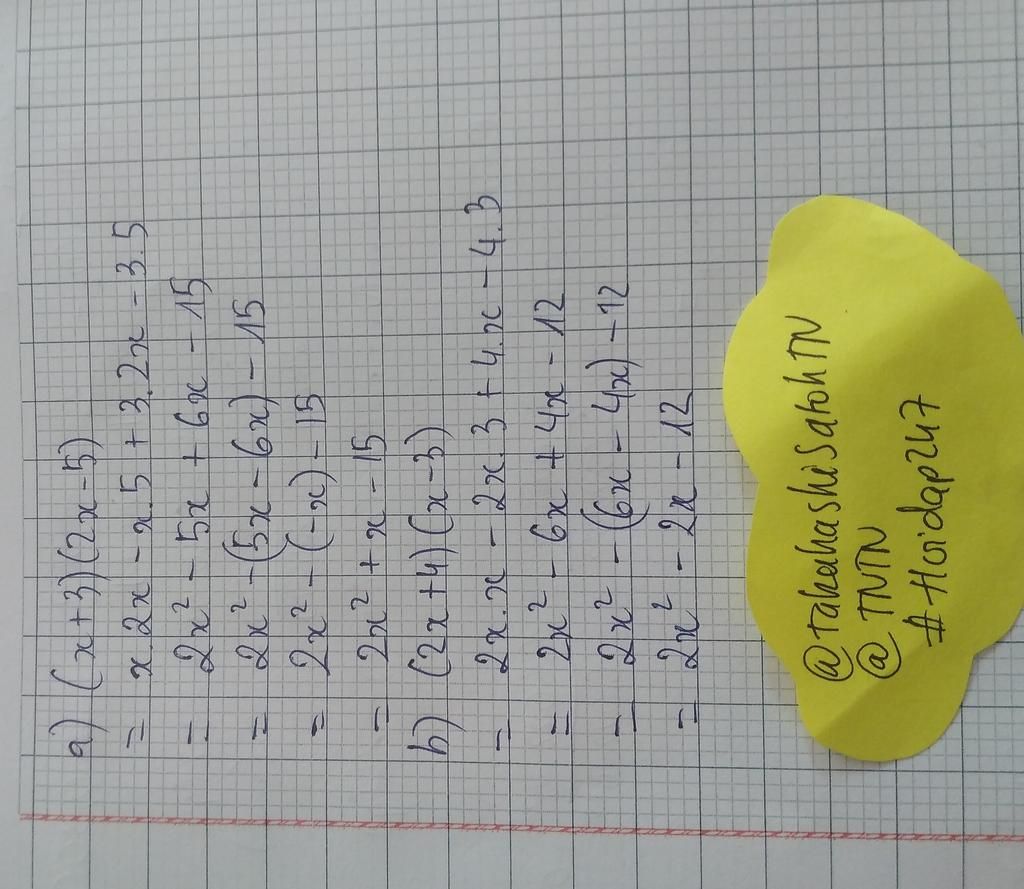 a) (x+3)(2x-5)
= x.2x - x.5 + 3.2x - 3.5
= 2x² - 5x + 6x - 15
= 2x² - (5x - 6x) - 15
= 2x² - (-x) - 15
= 2x² + x - 15
b) (2x+4)(x-3)
= 2x.x - 2x.3 + 4.x - 4.3
= 2x² - 6x + 4x - 12
= 2x² - (6x - 4x) - 12
= 2x² - 2x - 12
@takahashiSatohTN
@TNTN
#Hoidap247